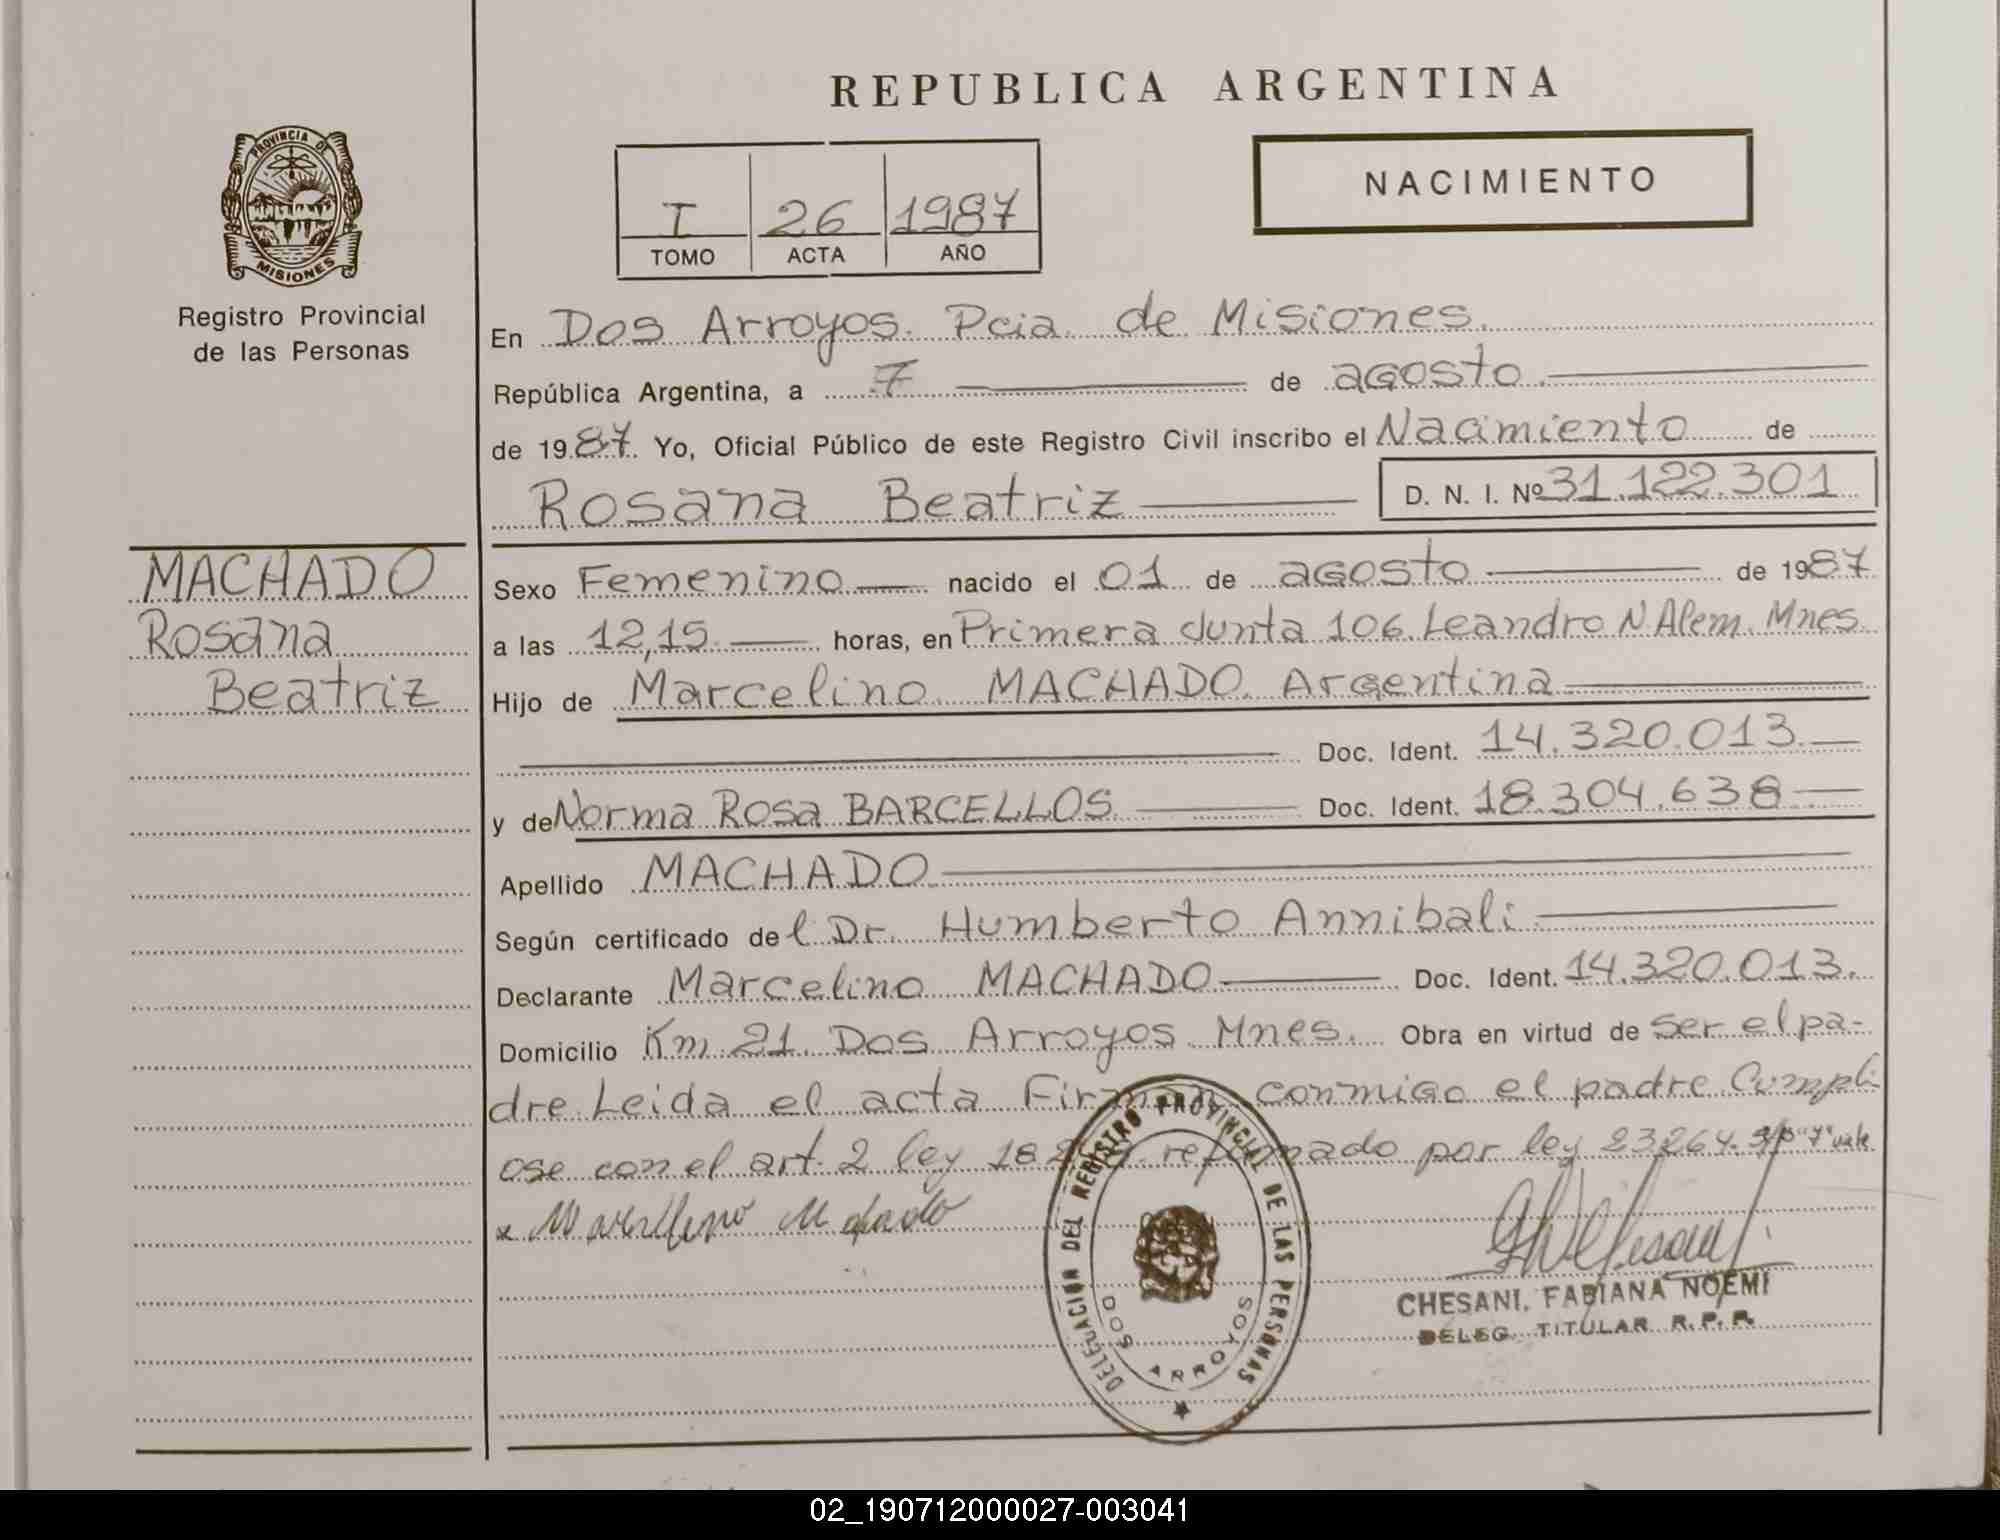 REPUBLICA ARGENTINA
PROVINCIA DE
MISIONES
Registro Provincial
de las Personas
I 26 1987
TOMO ACTA AÑO
NACIMIENTO
En Dos Arroyos. Pcia. de Misiones.
República Argentina, a 7 de agosto
de 1987. Yo, Oficial Público de este Registro Civil inscribo el Nacimiento de
Rosana Beatriz D. N. I. Nº 31.122.301
MACHADO
Rosana
Beatriz
Sexo Femenino nacido el 01 de agosto de 1987
a las 12,15 horas, en Primera Junta 106. Leandro N Alem. Mnes.
Hijo de Marcelino MACHADO. Argentina
Doc. Ident. 14.320.013
y de Norma Rosa BARCELLOS Doc. Ident. 18.304.638
Apellido MACHADO
Según certificado del Dr. Humberto Annibali
Declarante Marcelino MACHADO Doc. Ident. 14.320.013.
Domicilio Km 21. Dos Arroyos Mnes. Obra en virtud de ser el pa-
dre. Leida el acta Firman conmigo el padre. Cumpli
ose con el art. 2 ley 18 reformado por ley 23264. s/p "7" vale
x Marcelino Machado
DELEGACIÓN DEL REGISTRO PROVINCIAL DE LAS PERSONAS
DOS ARROYOS
CHESANI, FABIANA NOEMI
DELEG. TITULAR R.P.P.
02_190712000027-003041